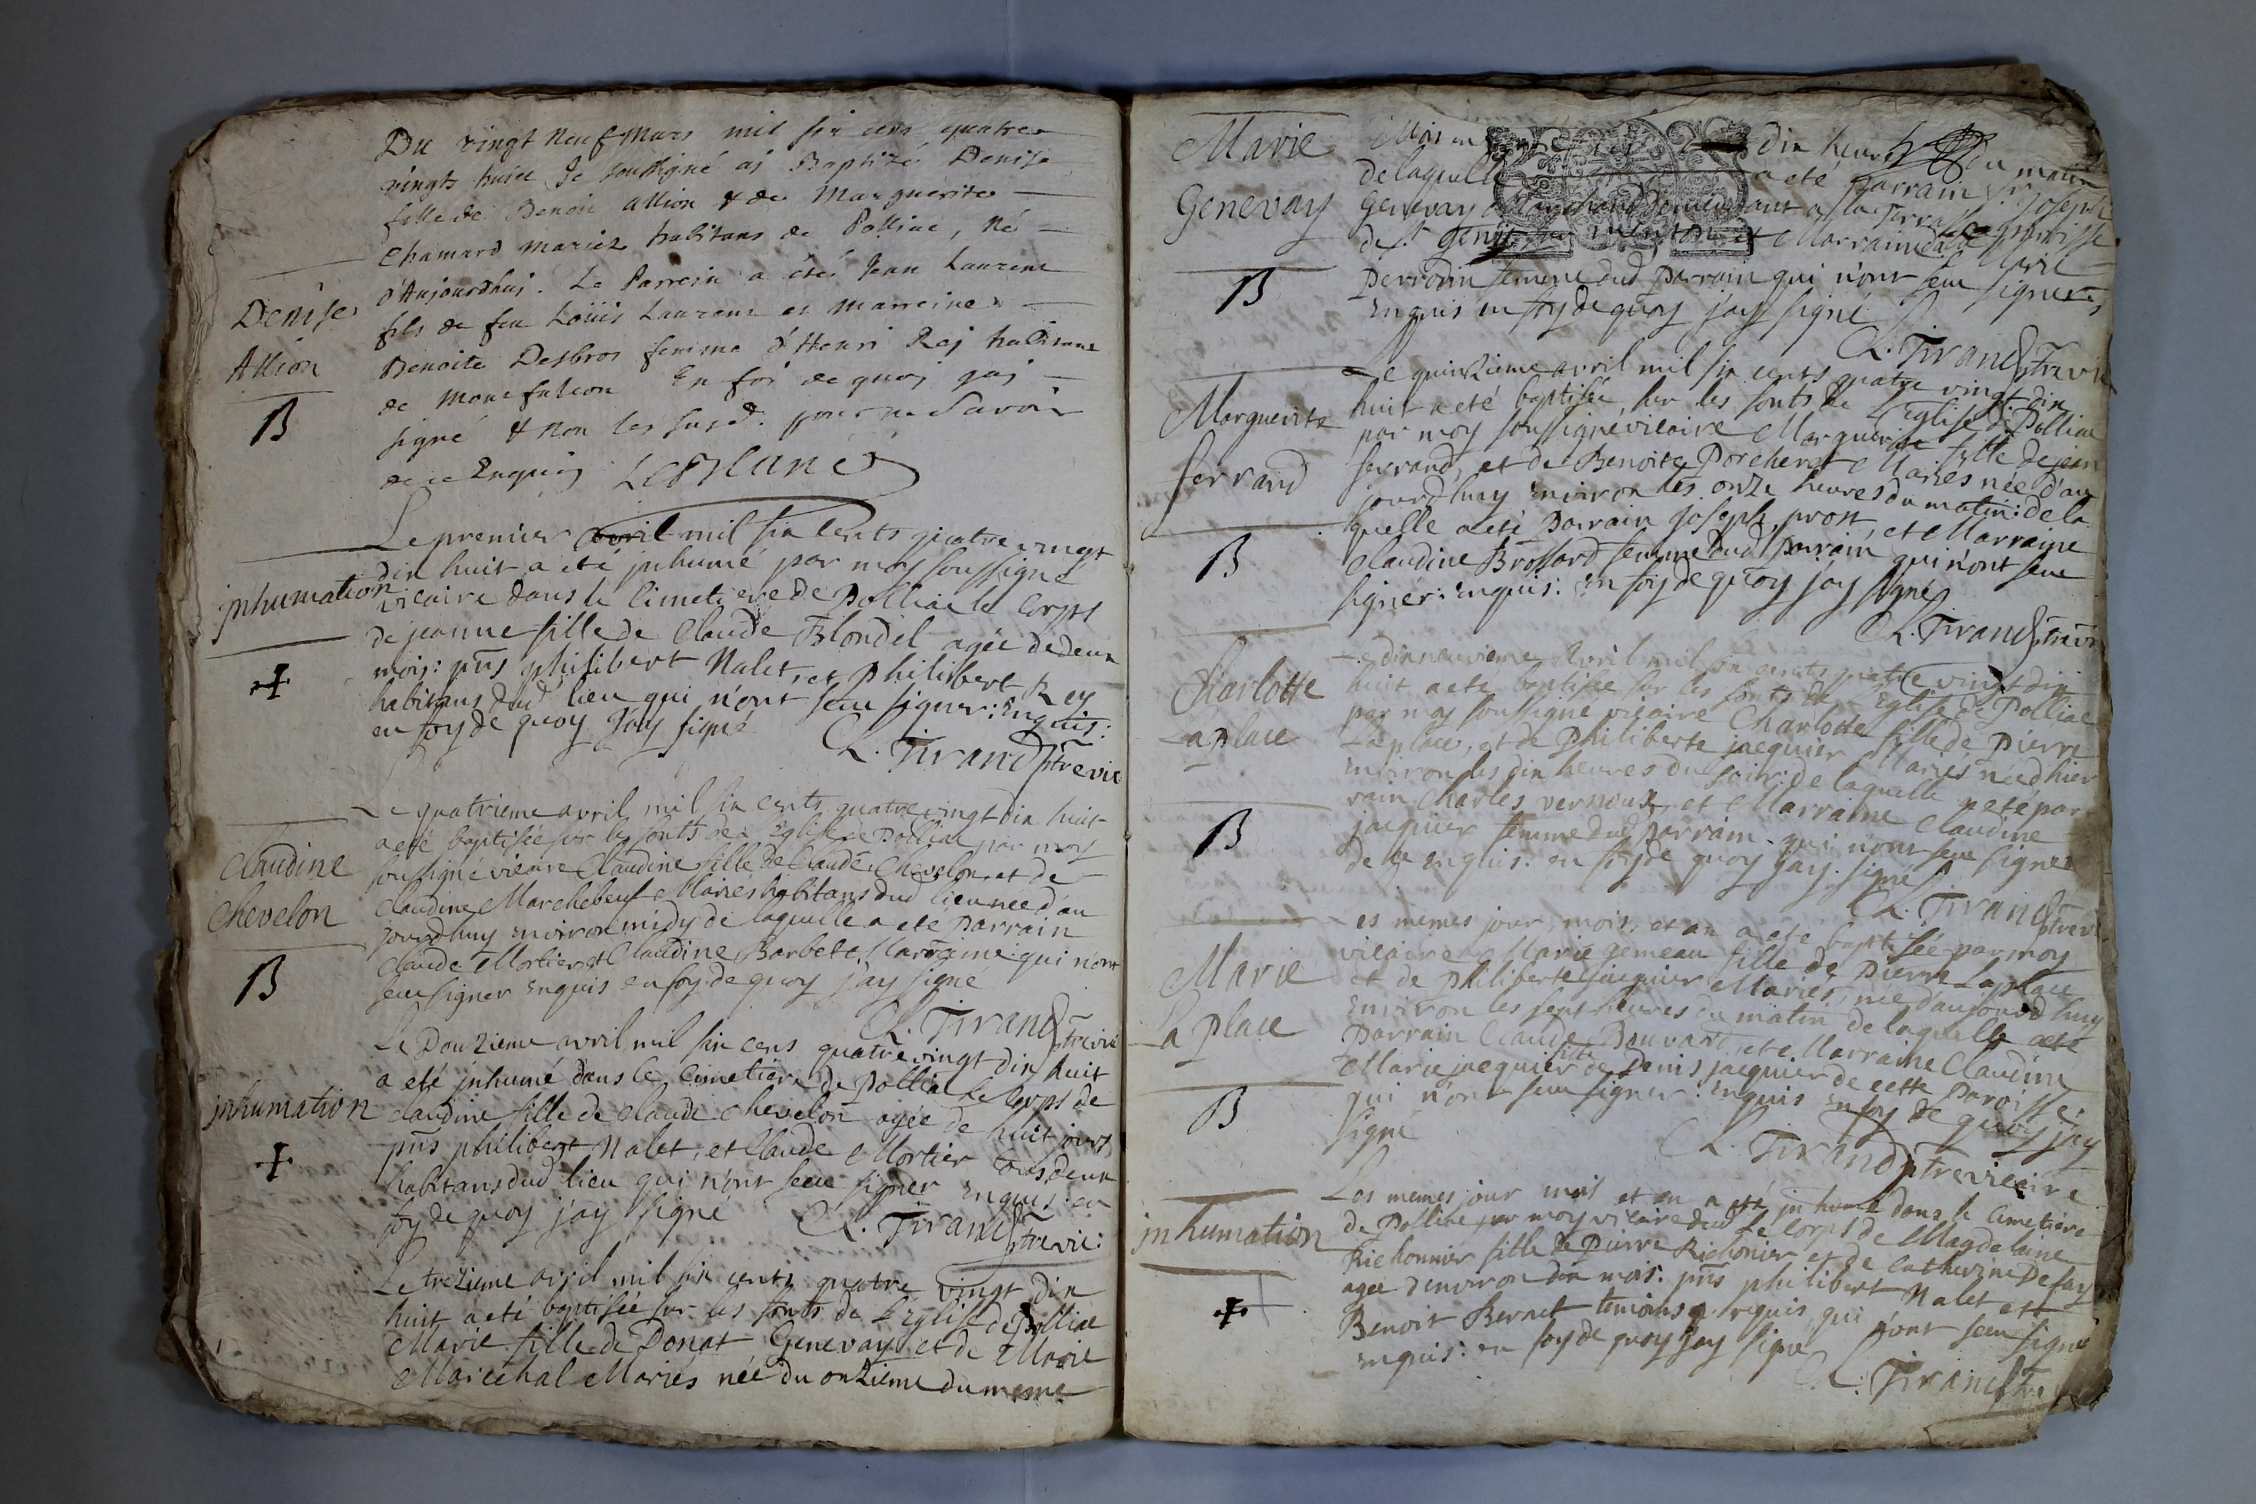 Du vingt neuf Mars mil six cens quatre
vingts huict Je soussigné ai Baptizé Denise
fille de Benoit Allion & de Marguerite
Chamard mariez habitans de Polliac, Né
d'Aujourdhui. Le Parrein a étés Jean Laurent
fils de feu Loüis Laurent et marreine
Benoite Desbros femme d'Henri Rej habitans
de Montfalcon En foi de quoy jai
signé & non les susd. pour ne Savoir
de ce Enquis
Denise
Allion
B
Le premier avril mil six cents quatre vingt
dix huit a eté jnhumé par moy soussigné
vicaire dans le Cimetiere de Polliac le Corps
de jeanne fille de Claude Blondel agée de deux
mois: pns philibert Nalet, et Philibert Rey
habitans dud lieu qui n'ont seu signer: enquis:
en foy de quoy j'ay signé
C. Tirand ptre vic
jnhumation
Le quatrieme avril mil six cents quatre vingt dix huit
a eté baptisée sur les fonts de l'Eglise de Polliac par moy
soussigné vicaire Claudine fille de Claude Chevelon, et de
Claudine Marchebeuf Maries habitans dud lieu née d'au
jourdhuy environ midy de laquelle a eté Parrain
Claude Mortier et Claudine Barbet Marraine qui n'ont
seu signer enquis en foy de quoy j'ay signé
C. Tirand ptre vic
Claudine
Chevelon
B
Le Douzieme avril mil six cens quatre vingt dix huit
a eté jnhumé dans le Cimetiere de Polliac le Corps de
Claudine fille de Claude Chevelon agée de huit jours
pns philibert Nalet, et Claude Mortier tous deux
habitans dud lieu qui n'ont seu signer enquis: en
foy de quoy j'ay signé
C. Tirand ptre vic:
jnhumation
Le trezieme avril mil six cents quatre vingt dix
huit a eté baptisée sur les fonts de l'Eglise de Polliac
Marie fille de Donat Genevay et de Marie
Marechal Mariés née du onzieme du meme
Marie
Genevay
B
Mois dix heures du matin
de laquelle a eté Parrain Sr. Joseph
Genevay
de St. Genis et Marraine
Perrodin femme dud Parrain qui n'ont seu signer
enquis en foy de quoy j'ay signé
C. Tirand ptre vic
Marguerite
ferrand
B
Le quinzieme avril mil six cents quatre vingt dix
huit a eté baptisée sur les fonts de l'Eglise de Polliac
par moy soussigné vicaire Marguerite fille de jean
ferrand, et de Benoite Porcheret Mariés née d'au
jourdhuy environ les onze heures du matin: de la
quelle a eté Parrain joseph prost et Marraine
Claudine Brossard femme dud Parrain qui n'ont seu
signer: enquis: en foy de quoy j'ay signé
C. Tirand ptre vic
Charlotte
Laplace
B
Le dixneuvieme Avril mil six cents quatre vingt dix
huit a eté baptisée sur les fonts de l'Eglise de Polliac
par moy soussigné vicaire Charlotte fille de Pierre
Laplace, et de Philiberte jacquier Mariés née d'hier
environ les dix heures du soir: de laquelle a eté par
rain Charles verneux, et Marraine Claudine
jacquier femme dud Parrain. qui n'ont seu signer
de ce enquis: en foy de quoy j'ay signé
C. Tirand ptre vic
Marie
La place
B
Les memes jour, mois, et an a eté baptisée par moy
vicaire Marie gemeau fille de Pierre Laplace
et de Philiberte jacquier Mariés, née d'aujourdhuy
environ les sept heures du matin de laquelle a eté
Parrain Claude Bouvard, et Marraine Claudine
Marie jacquier fille de Denis jacquier de cette Paroisse:
qui n'ont seu signer: enquis en foy de quoy j'ay
signé
C. Tirand ptre vicaire
jnhumation
Les memes jour mois et an a eté jnhumé dans le Cimetiere
de Polliac par moy vicaire dud le Corps de Magdelaine
Richonnier fille de Pierre Richonier et de Catherine Defay
agée d'environ dix mois: pns philibert Nalet et
Benoit Bernet temoins requis, qui n'ont seu signé
enquis: en foy de quoy j'ay signé
C. Tirand ptre